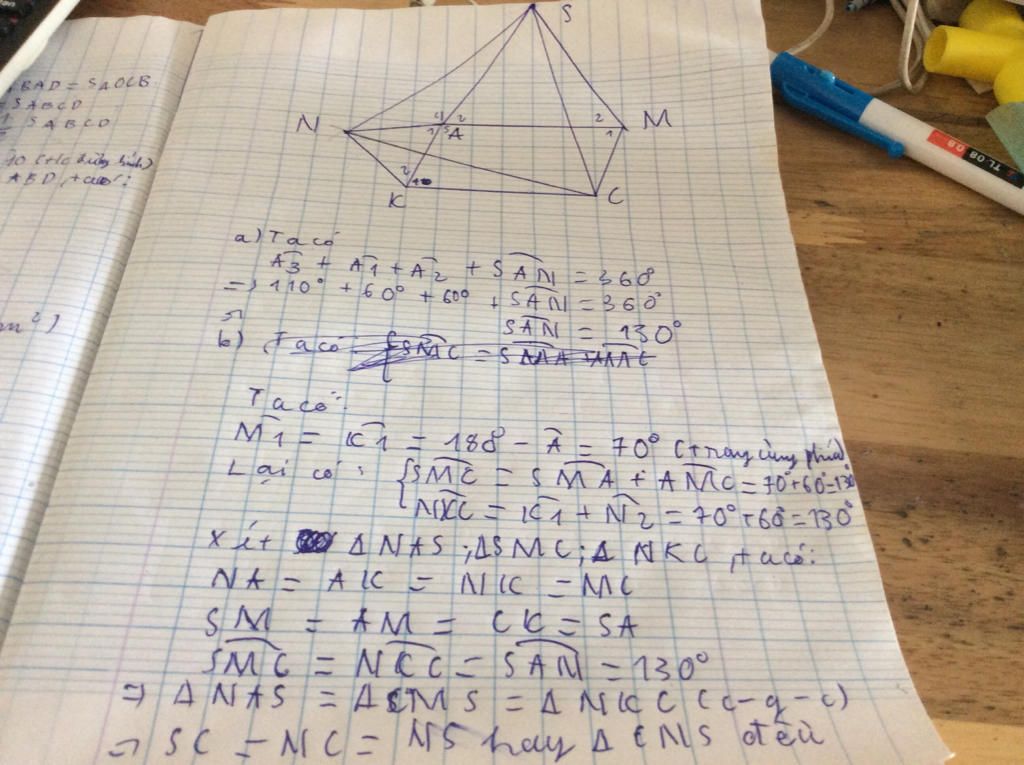 BAD = SAOCB
= SABCD
SABCD
ABD, ta có:
m²)
S
N
4 2
1 3 A
2
1
M
2
K
C
a) Ta có
A3 + A1 + A2 + SAN = 360°
=> 110° + 60° + 60° + SAN = 360°
SAN = 130°
b)
Ta có:
M1 = K1 = 180° - A = 70° (trong cùng phía)
Lại có: { SMC = SMA + AMC = 70° + 60° = 130°
NKC = K1 + N2 = 70° + 60° = 130°
Xét Δ NAS; Δ SMC; Δ NKC, ta có:
NA = AK = NK = MC
SM = AM = CK = SA
SMC = NKC = SAN = 130°
=> Δ NAS = Δ CMS = Δ NKC (c-g-c)
=> SC = NC = NS hay Δ CNS đều
TL 08 0.8